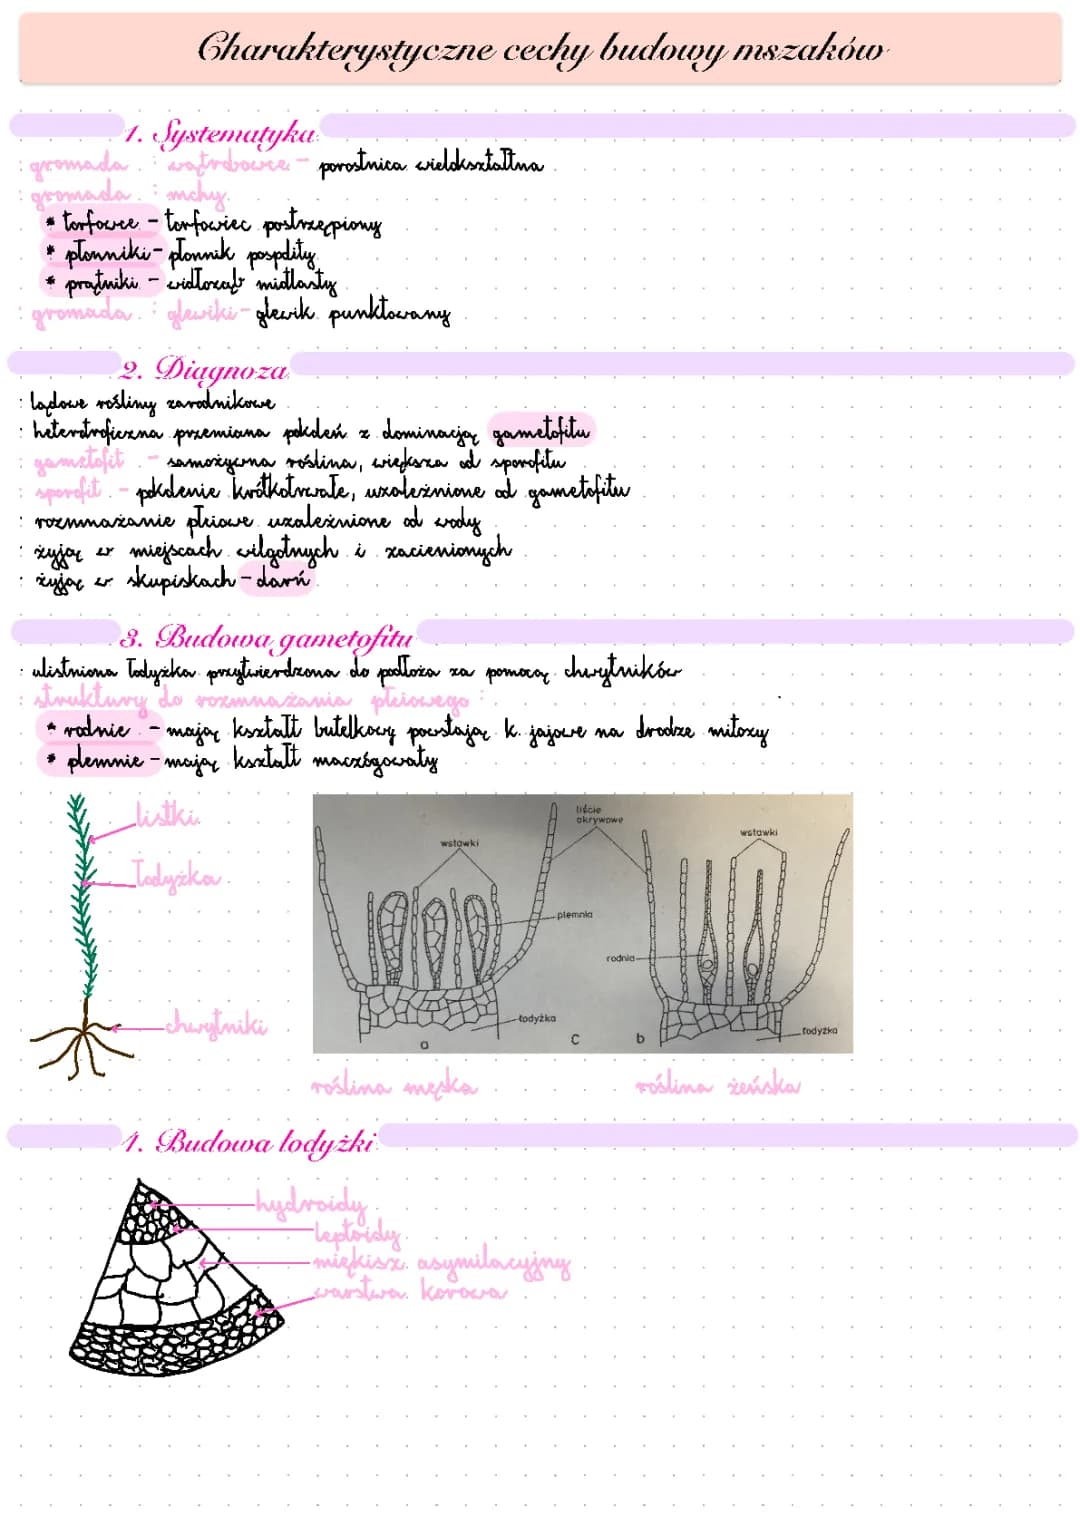 Charakterystyczne cechy budowy mszaków
1. Systematyka
gromada : wątrobowce - porostnica wielokształtna
gromada : mchy
* torfowce - torfowiec postrzępiony
* płonniki - płonnik pospolity
* prątniki - widłoząb miotlasty
gromada : glewiki - glewik punktowany
2. Diagnoza
· lądowe rośliny zarodnikowe
· heterotroficzna przemiana pokoleń z dominacją gametofitu
· gametofit - samożywna roślina, większa od sporofitu
· sporofit - pokolenie krótkotrwałe, uzależnione od gametofitu
· rozmnażanie płciowe uzależnione od wody
· żyją w miejscach wilgotnych i zacienionych
· żyją w skupiskach - darń
3. Budowa gametofitu
· ulistniona łodyżka przytwierdzona do podłoża za pomocą chwytników
· struktury do rozmnażania płciowego :
* rodnie - mają kształt butelkowy powstają k. jajowe na drodze mitozy
* plemnie - mają kształt maczógowaty
listki
łodyżka
chwytniki
wstawki
liście okrywowe
wstawki
plemnia
rodnia
łodyżka
łodyżka
a
c
b
roślina męska
roślina żeńska
1. Budowa lodyżki
hydroidy
leptoidy
miękisz asymilacyjny
warstwa korowa